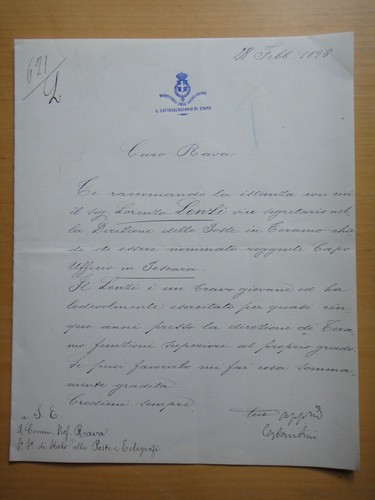 621
28 Febb. 1898
MINISTERO DELL'ISTRUZIONE
IL SOTTOSEGRETARIO DI STATO
Caro Rava
Ti raccomando la istanza con cui
il sig. Lorenzo Lenzi vice segretario nel
la Direzione delle Poste in Teramo chie
de di essere nominato reggente Capo
Ufficio in Pescara.
Il Lenzi è un bravo giovane ed ha
lodevolmente esercitato per quasi cin
que anni presso la direzione di Tera
mo funzioni superiori al proprio grado.
Se puoi favorirlo mi fai cosa somma
mente gradita.
Credimi sempre
tuo
Costantini
a S. E.
il Comm. Prof. Rava
S. S. di Stato alle Poste e Telegrafi